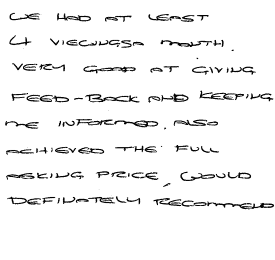 WE HAD AT LEAST
4 VIEWINGS A MONTH.
VERY GOOD AT GIVING
FEED-BACK AND KEEPING
ME INFORMED. ALSO
ACHIEVED THE FULL
ASKING PRICE, WOULD
DEFINATELY RECOMMEND